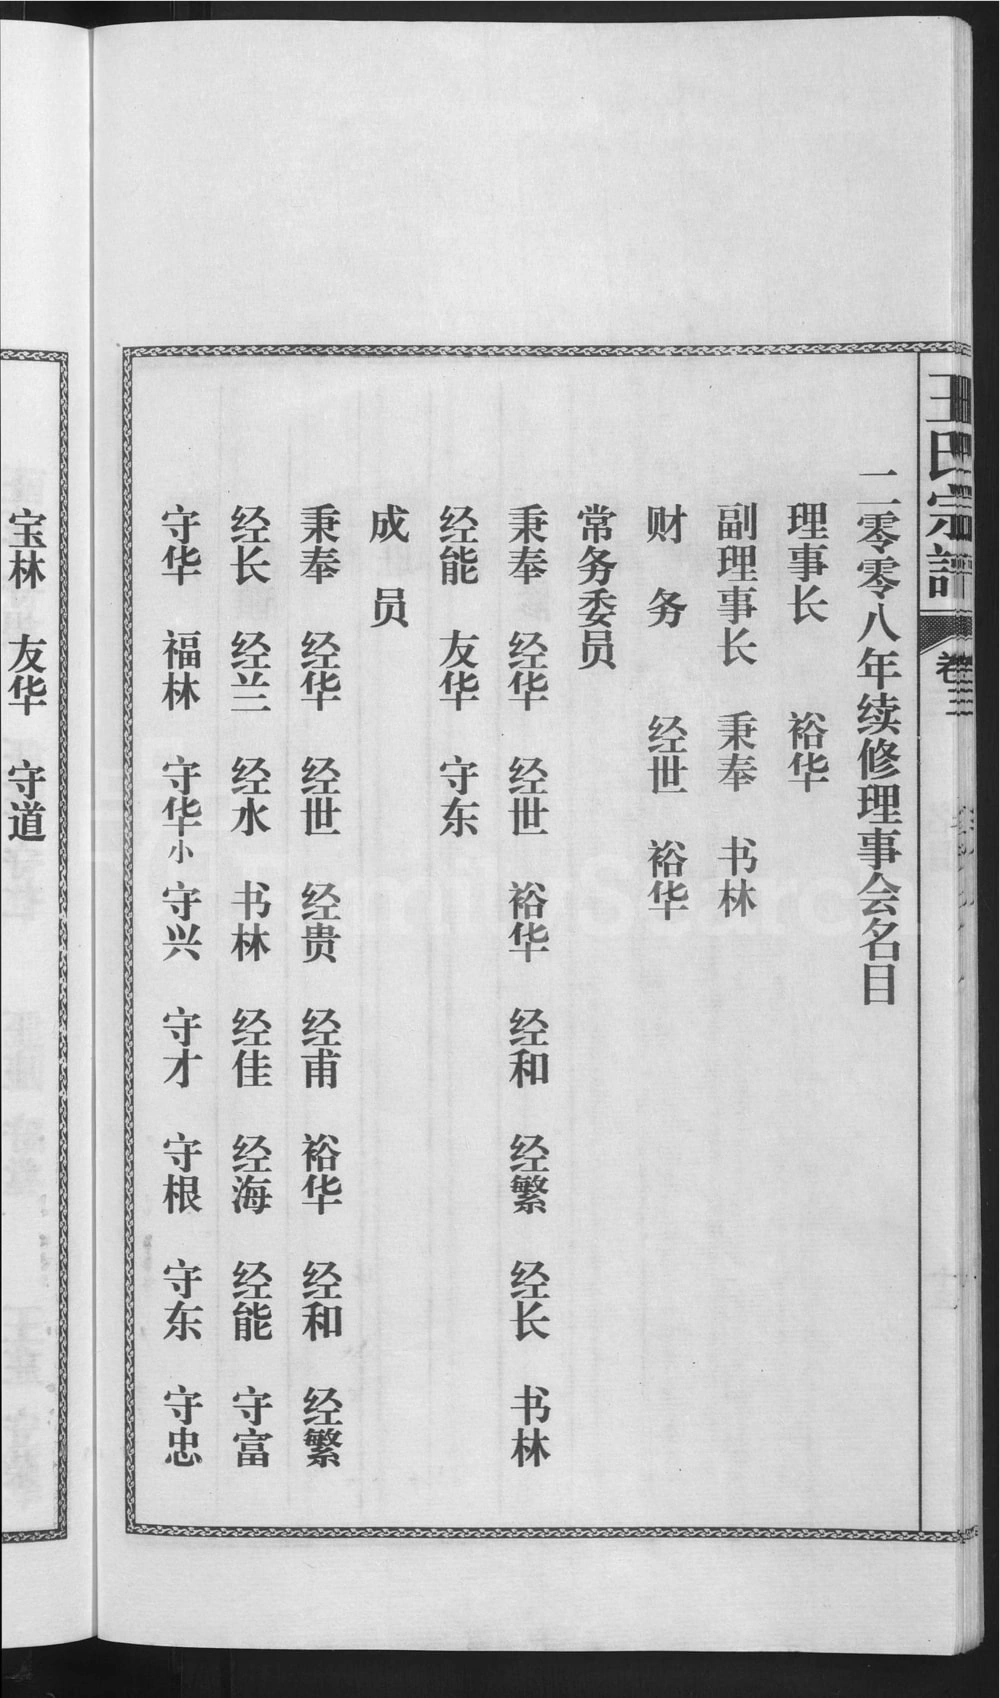 王氏宗譜
卷三
二零零八年续修理事会名目
理事长 裕华
副理事长 秉奉 书林
财务 经世 裕华
常务委员
秉奉 经华 经世 裕华 经和 经繁 经长 书林
经能 友华 守东
成员
秉奉 经华 经世 经贵 经甫 裕华 经和 经繁
经长 经兰 经水 书林 经佳 经海 经能 守富
守华 福林 守华小 守兴 守才 守根 守东 守忠
宝林 友华 守道